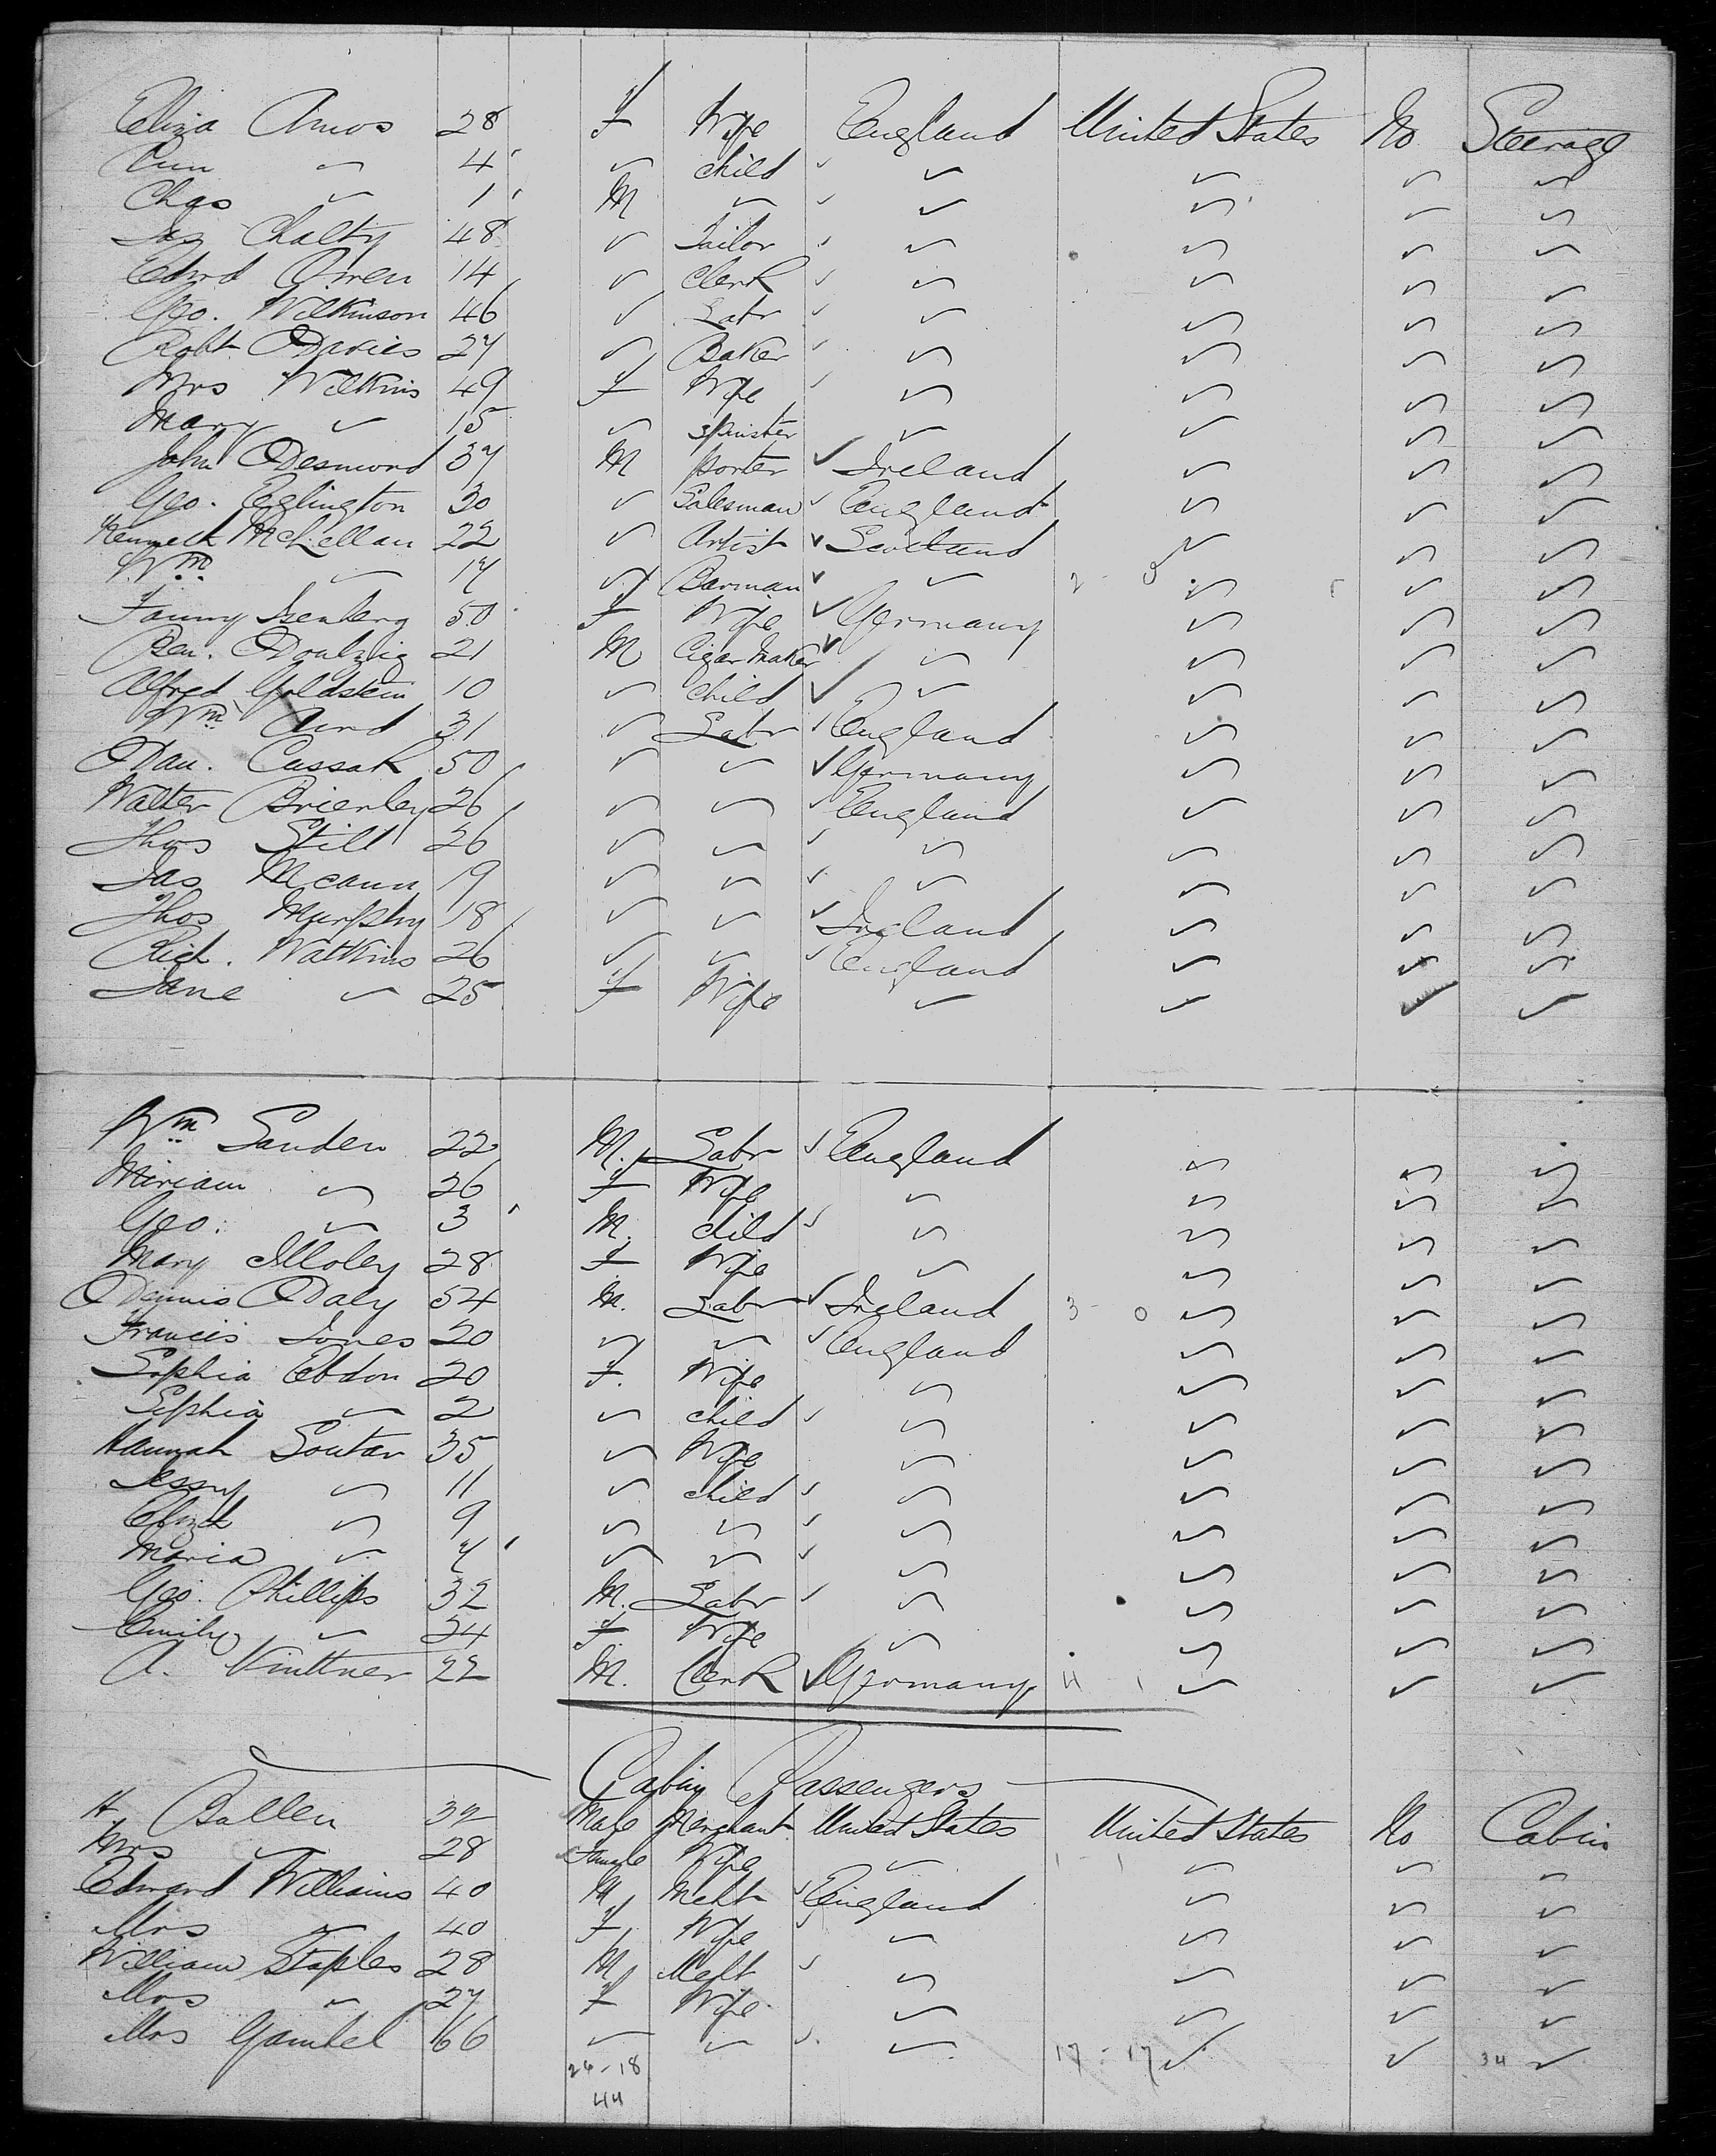 Eliza Amos 28 f Wife England United States No Steerage
Ann " 4 " child " " " "
Chas " 1 M " " " " "
Jas Chalty 48 " Tailor " " " "
Edwd Owen 14 " Clerk " " " "
Geo. Wilkinson 46 " Labr " " " "
Robt Davies 27 " Baker " " " "
Mrs Wilkins 49 f Wife " " " "
Mary " 15 " Spinster " " " "
John Desmond 37 M porter Ireland " " "
Geo. Eglington 30 " Salesman England " " "
Kenneth McLellan 22 " Artist Scotland " " "
Wm " 17 " Barman " 2 - 0 " " "
Fanny Isenberg 50 f Wife Germany " " "
Ben. 21 M Cigar Maker " " " "
Alfred Goldstein 10 " child " " " "
Wm 31 " Labr England " " "
Dan. Cussak 50 " " Germany " " "
Walter Brierley 26 " " England " " "
Thos Still 26 " " " " " "
Jas Mcann 19 " " " " " "
Thos Murphy 18 " " Ireland " " "
Rich. Watkins 26 " " England " " "
Jane " 25 f Wife " " " "
Wm Sanden 22 M. Labr England " " "
Miriam " 26 f Wife " " " "
Geo. " 3 M. child " " " "
Mary 28 f Wife " " " "
Dennis Daly 54 M. Labr Ireland 3 - 0 " " "
Francis Jones 20 " " England " " "
Sophia Ebdon 20 f. Wife " " " "
Sophia " 2 " child " " " "
Hannah Soutar 35 " Wife " " " "
Jessy " 11 " child " " " "
" 9 " " " " " "
Maria " 7 " " " " " "
Geo. Phillips 32 M. Labr " " " "
Emily " 34 f Wife " " " "
A. 22 M. Clerk Germany 4 1 " " "
Cabin Passengers
H. Ballen 32 Male Merchant United States United States No Cabin
Mrs " 28 Female Wife " " " "
Edward Williams 40 M Mcht England " " "
Mrs " 40 f Wife " " " "
William Staples 28 M Mcht " " " "
Mrs " 27 f Wife " " " "
Mrs Gambel 66 " " " 17 - 17 " " 34 "
26 - 18
44